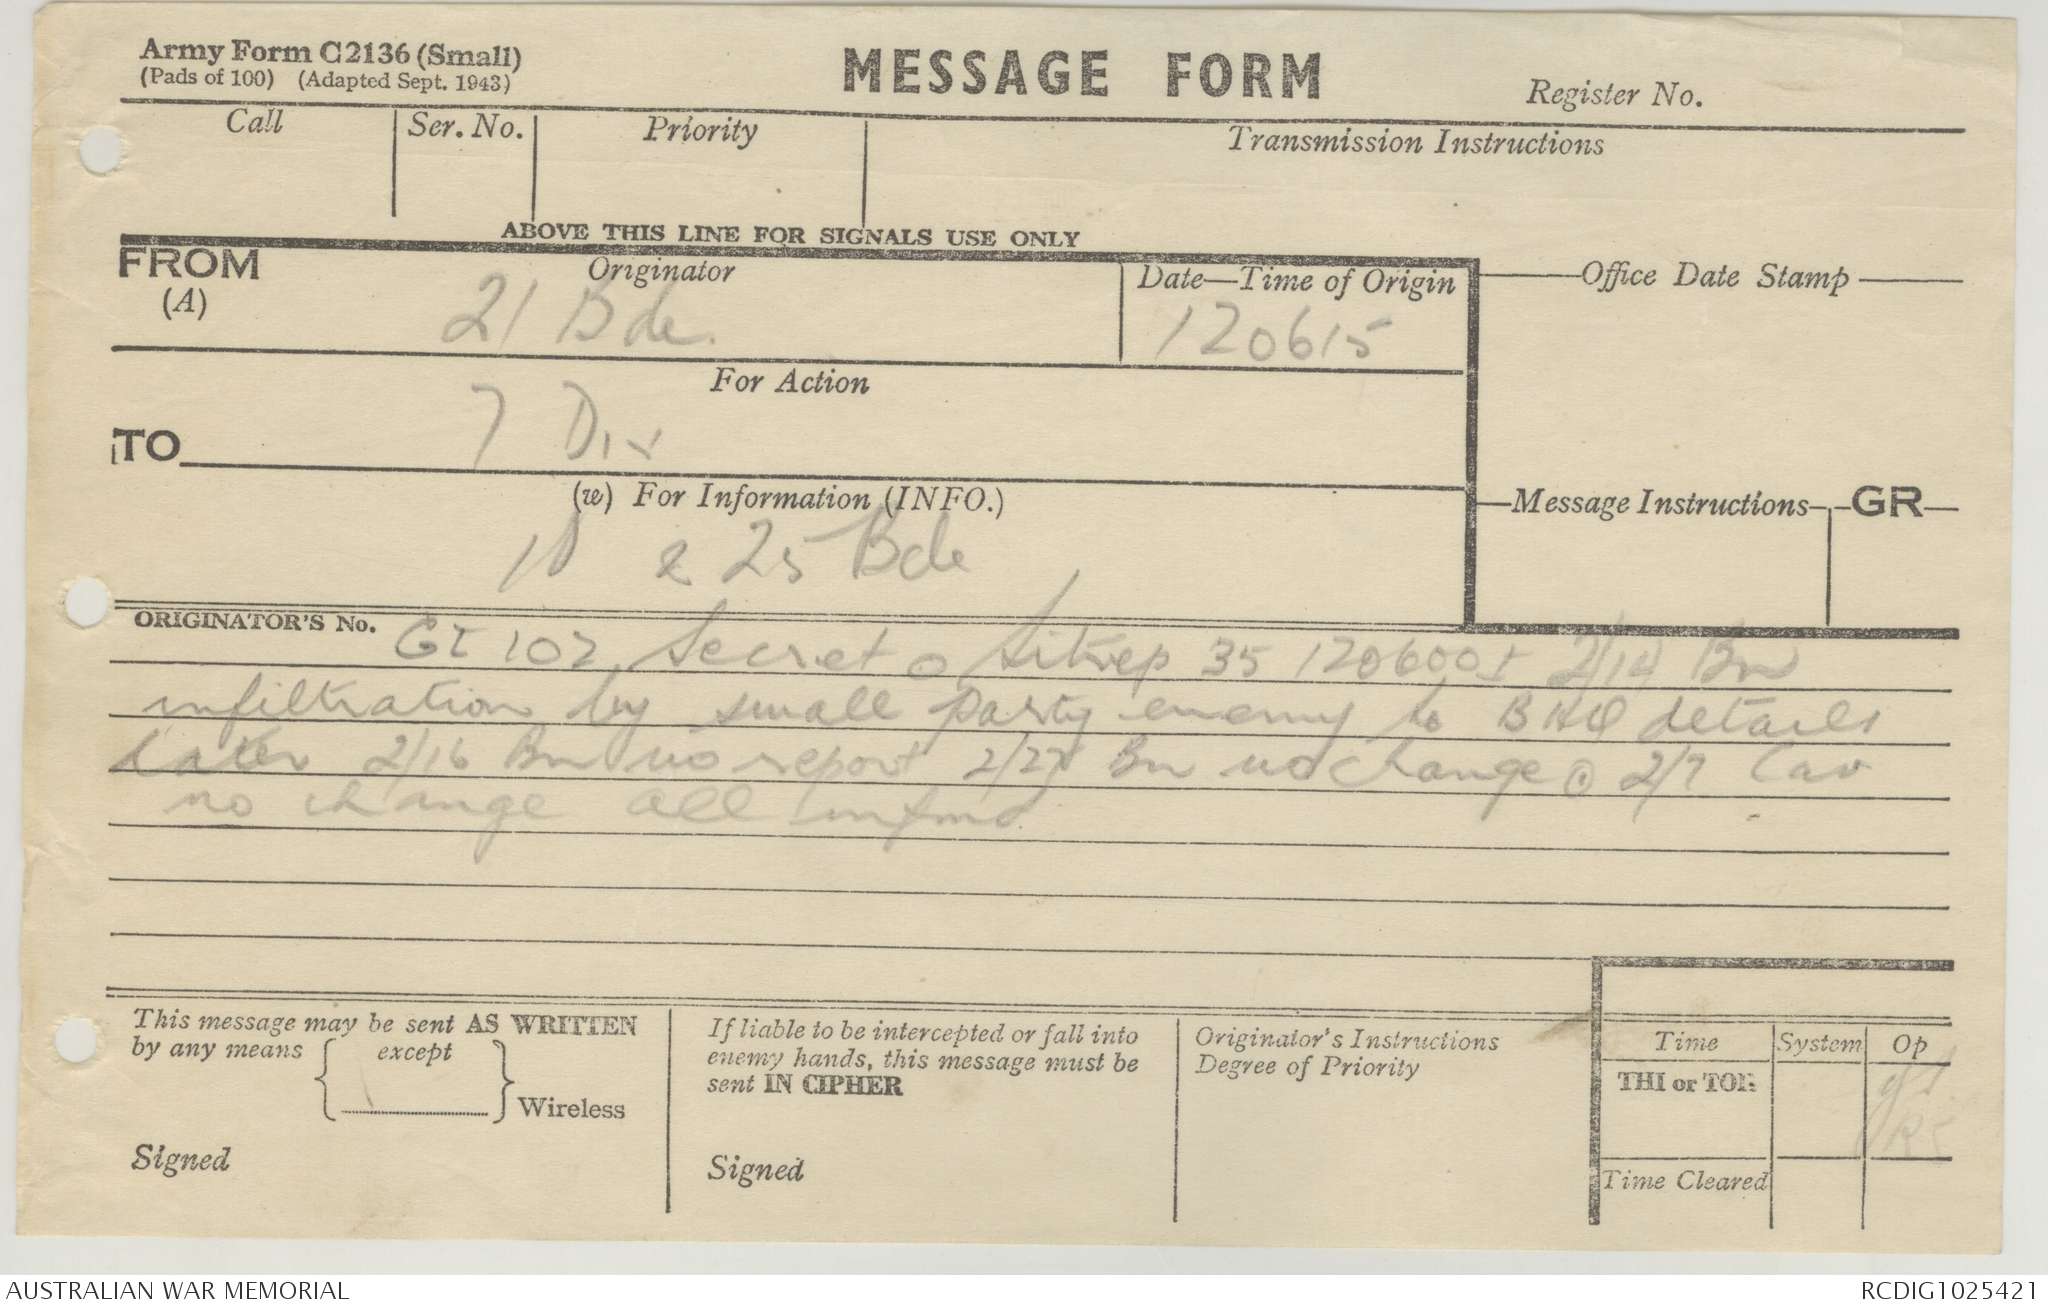 Army Form C2136 (Small)
(Pads of 100) (Adapted Sept. 1943)
MESSAGE FORM
Register No.
Call
Ser. No.
Priority
Transmission Instructions
ABOVE THIS LINE FOR SIGNALS USE ONLY
FROM
(A)
Originator
21 Bde.
Date—Time of Origin
120615
Office Date Stamp
For Action
TO
7 Div
(w) For Information (INFO.)
& 25 Bde
Message Instructions
GR
ORIGINATOR'S No.
102 Secret o Sitrep 35 120600 2/14 Bn
infiltration by small party enemy to BHQ details
later 2/16 Bn no report 2/27 Bn no change 2/7 Cav
no change all infmd
This message may be sent AS WRITTEN
by any means
except
Wireless
Signed
If liable to be intercepted or fall into
enemy hands, this message must be
sent IN CIPHER
Signed
Originator's Instructions
Degree of Priority
Time
System
Op
THI or TOR
Time Cleared
AUSTRALIAN WAR MEMORIAL
RCDIG1025421